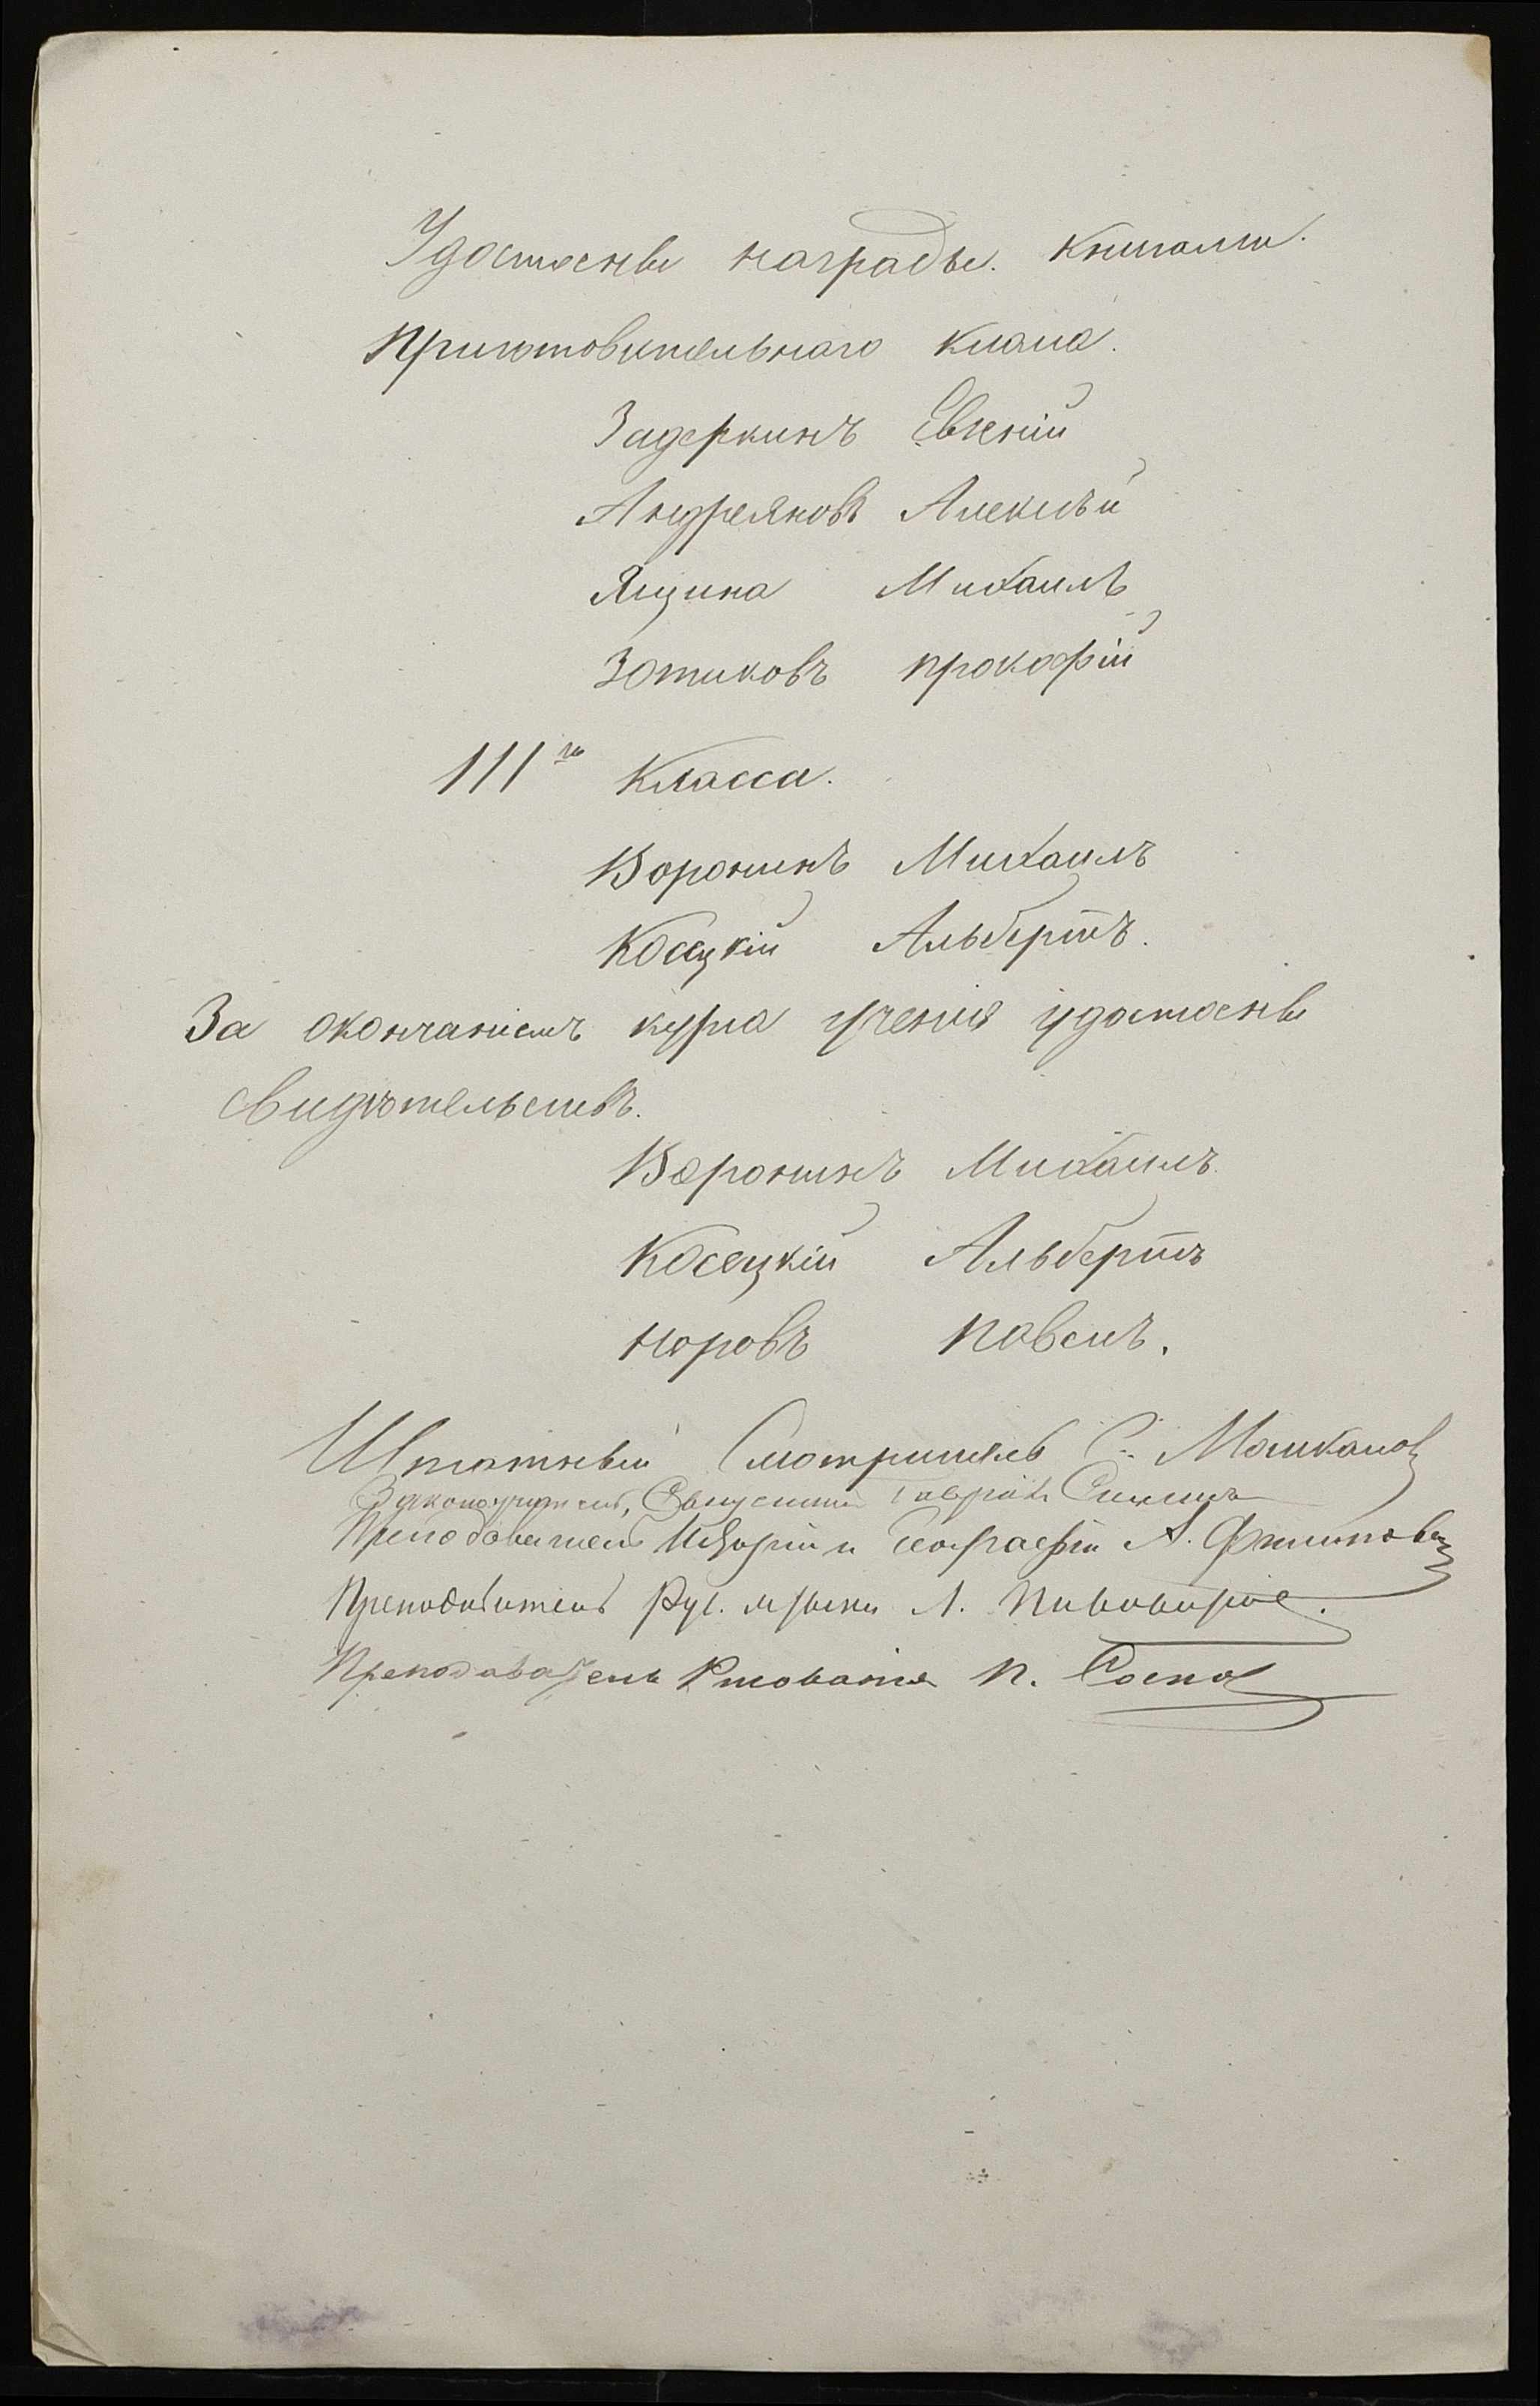 Удостоены награды. книгами.
Приготовительнаго класса.
Задеркинъ Евгеній
Андреяновъ Алексѣй
Ящина Михаилъ
Зотиковъ Прокофій
III го Класса.
Воронинъ Михаилъ
Косецкій Альбертъ.
За окончаніемъ курса ученія удостоены
свидѣтельствъ.
Воронинъ Михаилъ.
Косецкій Альбертъ
Норовъ Павелъ.
Штатный Смотритель С. Машкановъ
Законоучитель, Священникъ Гавріилъ
Преподаватель Исторіи и Географіи А. Филиповъ
Преподаватель Рус. языка Л.
Преподаватель Рисованія П.